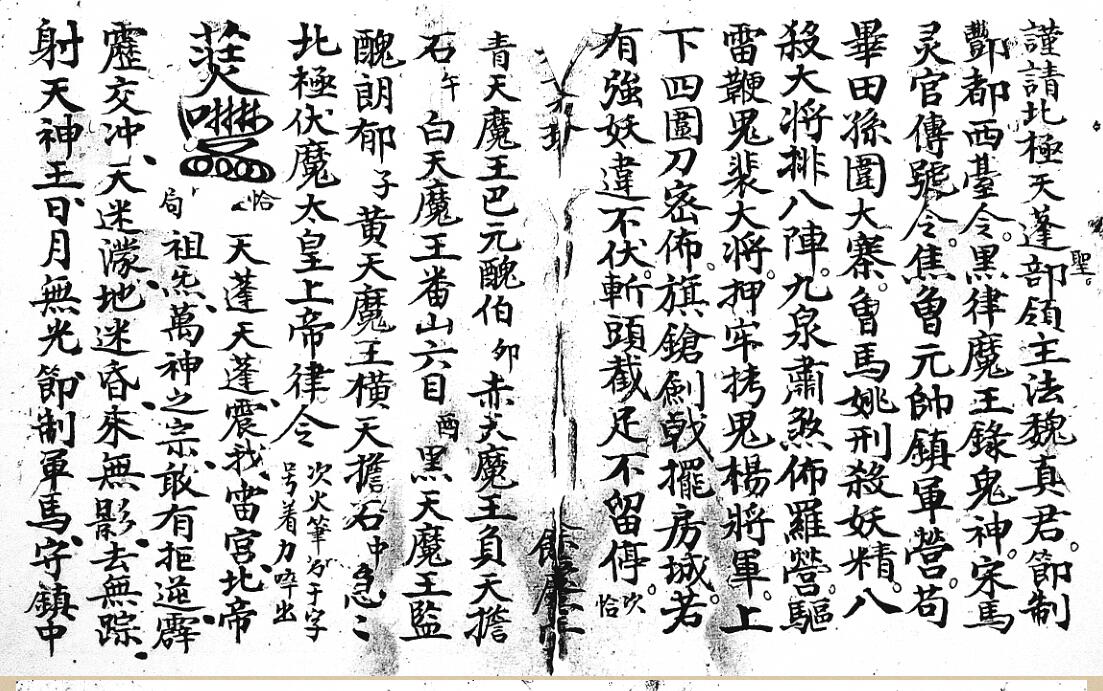 謹請北極天蓬部領主法魏真君。節制
酆都西臺令。黑律魔王錄鬼神。宋馬
灵官傳號令。焦魯元帥鎮軍營。苟
畢田孫圍大寨。魯馬姚刑殺妖精。八
殺大将排八陣。九泉肅煞佈羅營。驅
雷鞭鬼裴大将。押牢拷鬼楊將軍。上
下四圍刀密佈。旗鎗劍戟擺房城。若
有強妖違不伏。斬頭截足不留停。次恰
青天魔王巴元醜伯卯赤天魔王負天擔
石午白天魔王畨山六目酉黑天魔王監
醜朗郁子黄天魔王横天擔石中急〻
北極伏魔太皇上帝律令次火筆于字号着力啐出
恰局天蓬天蓬、震我雷宫、北帝
祖炁、萬神之宗、敢有拒逆、霹
靂交冲、天迷濛、地迷昏、来無影、去無踪、
射天神王、日月無光、節制軍馬、守鎮中
聖。